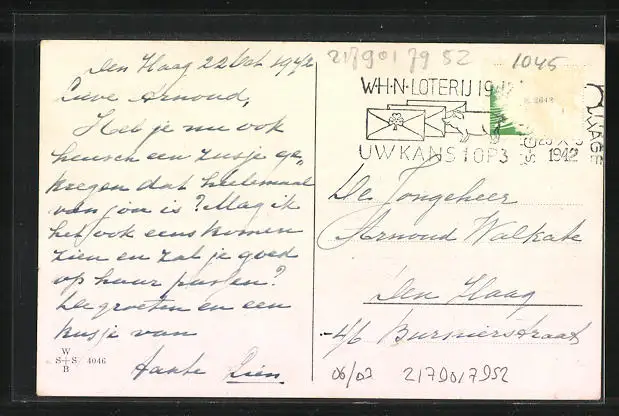 Den Haag 22 Oct 1942
Lieve Arnoud,
Heb je nu ook
heusch een zusje ge„
kregen dat heelemaal
van jou is? Mag ik
het ook eens komen
zien en zal je goed
op haar passen?
De groeten en een
kusje van
tante Lien.
W
S+S / 4046
B
217901 79 52
1045
W·H·N·LOTERIJ 1942
UW KANS 1 OP 3
1942
HAGE
De Jongeheer
Arnoud Walkate
Den Haag
46 Burnierstraat
06/03 217901 7952